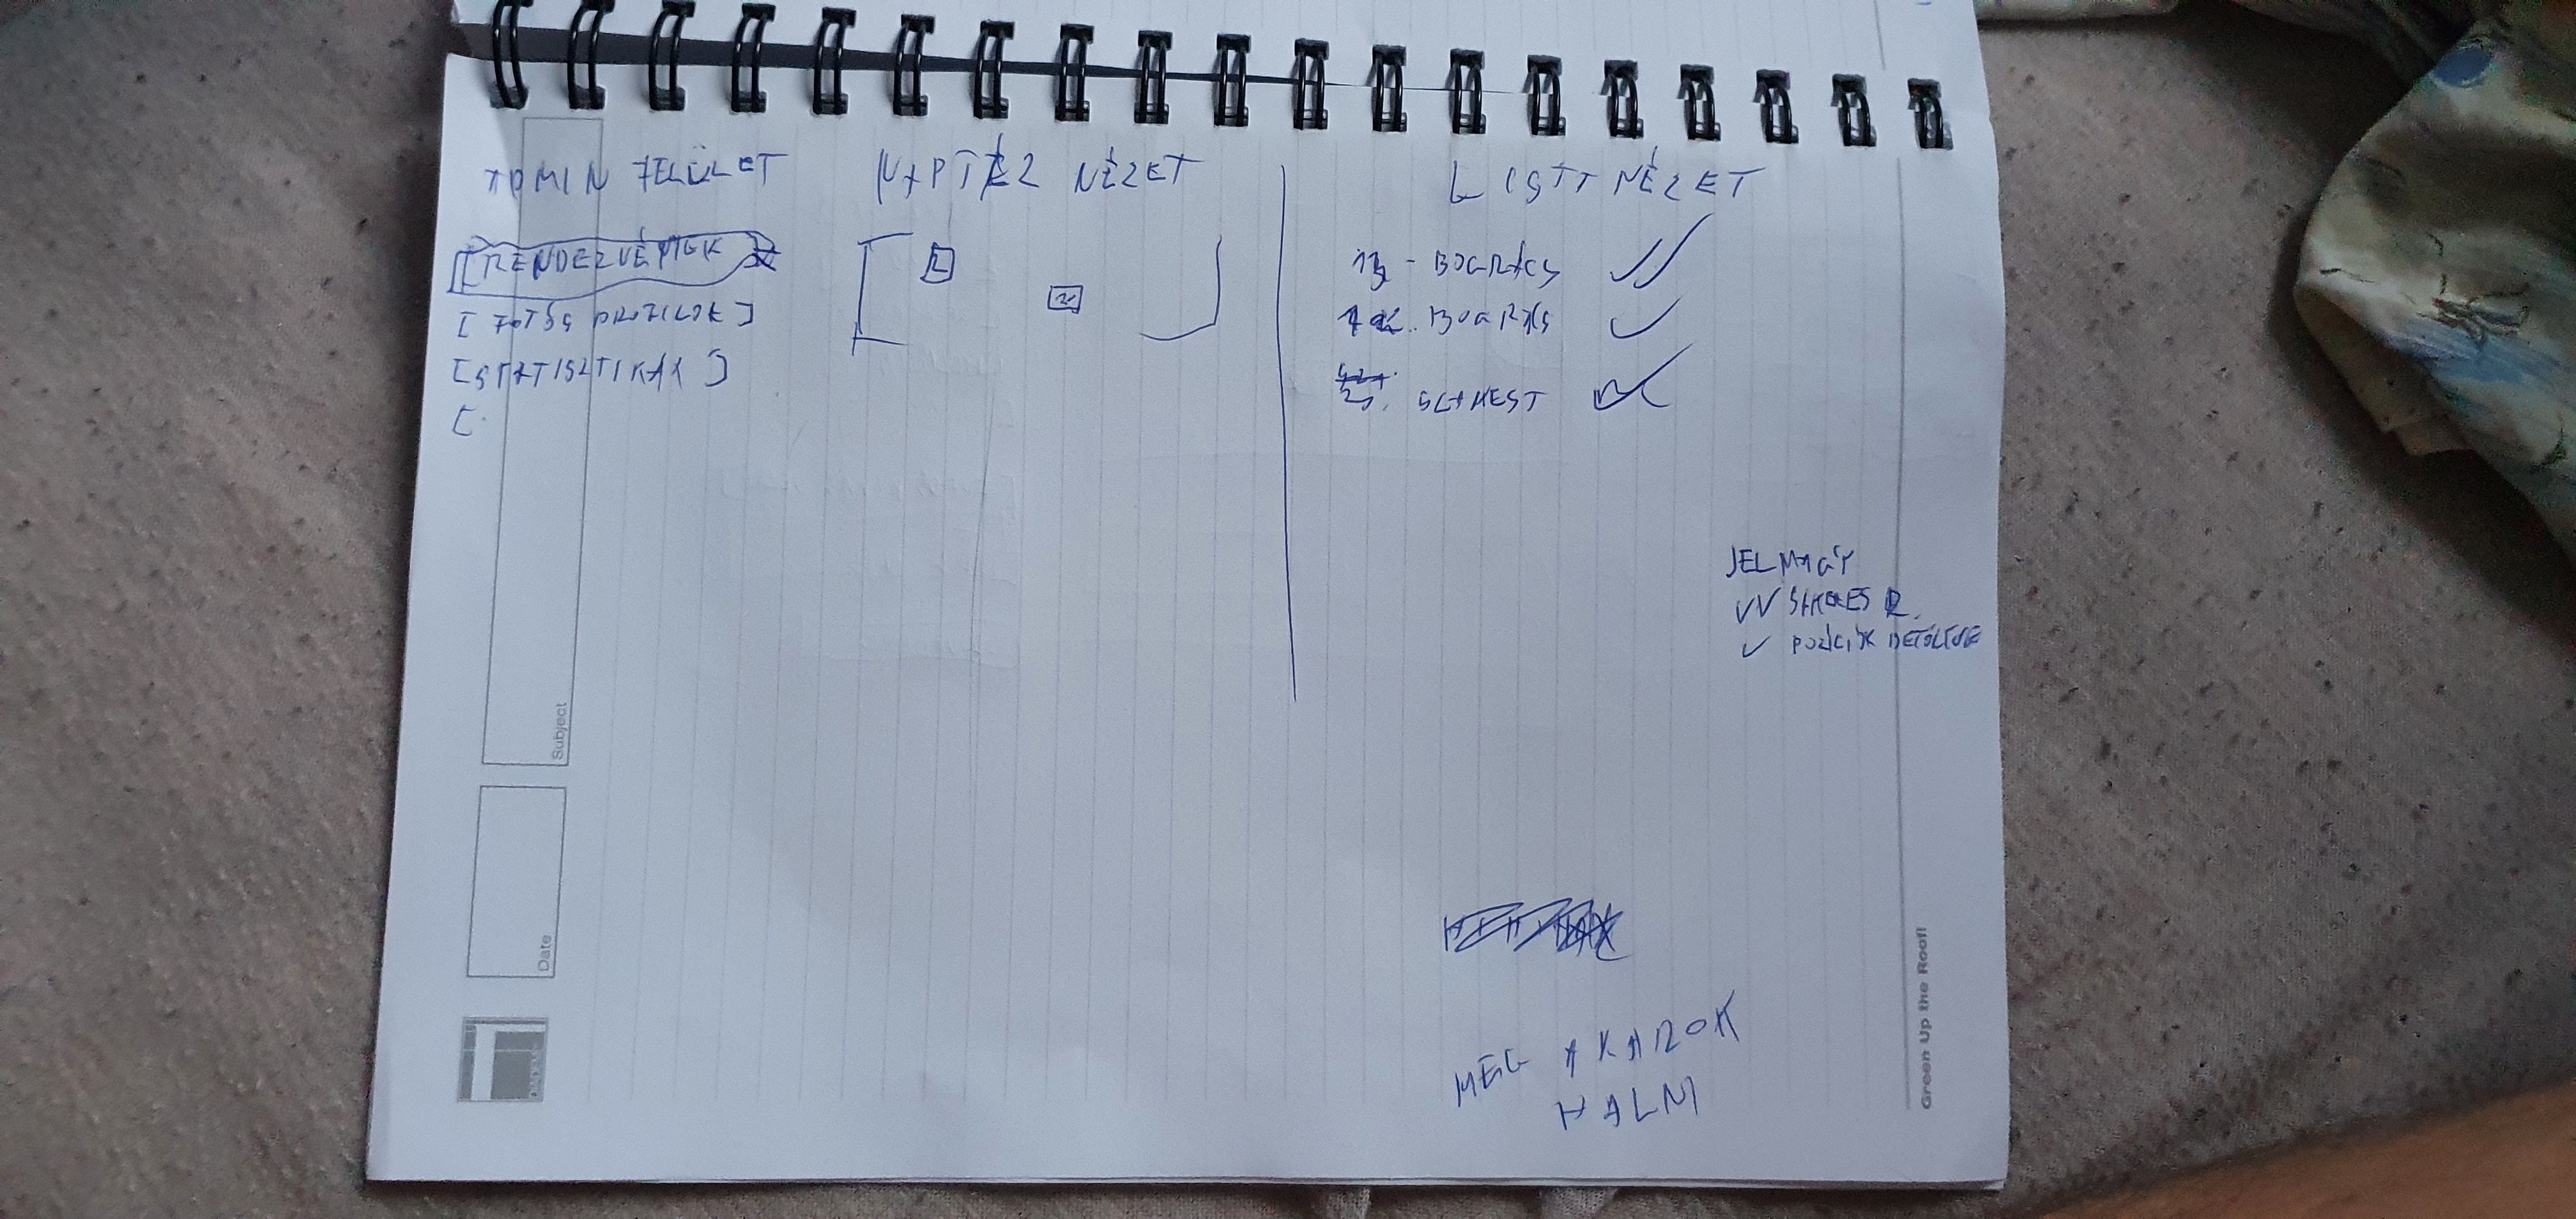 ADMIN FELÜLET
[RENDEZVÉNYEK]
[FOTÓS PROFILOK]
[STATISZTIKÁK]
[
NAPTÁR NÉZET
LISTA NÉZET
BOGRÁCS ✓✓
BOGRÁCS ✓
JELMAGY
✓✓
✓ POZÍCIÓK BETÖLTVE
MEG AKAROK
HALNI
Subject
Date
Green Up the Roof!